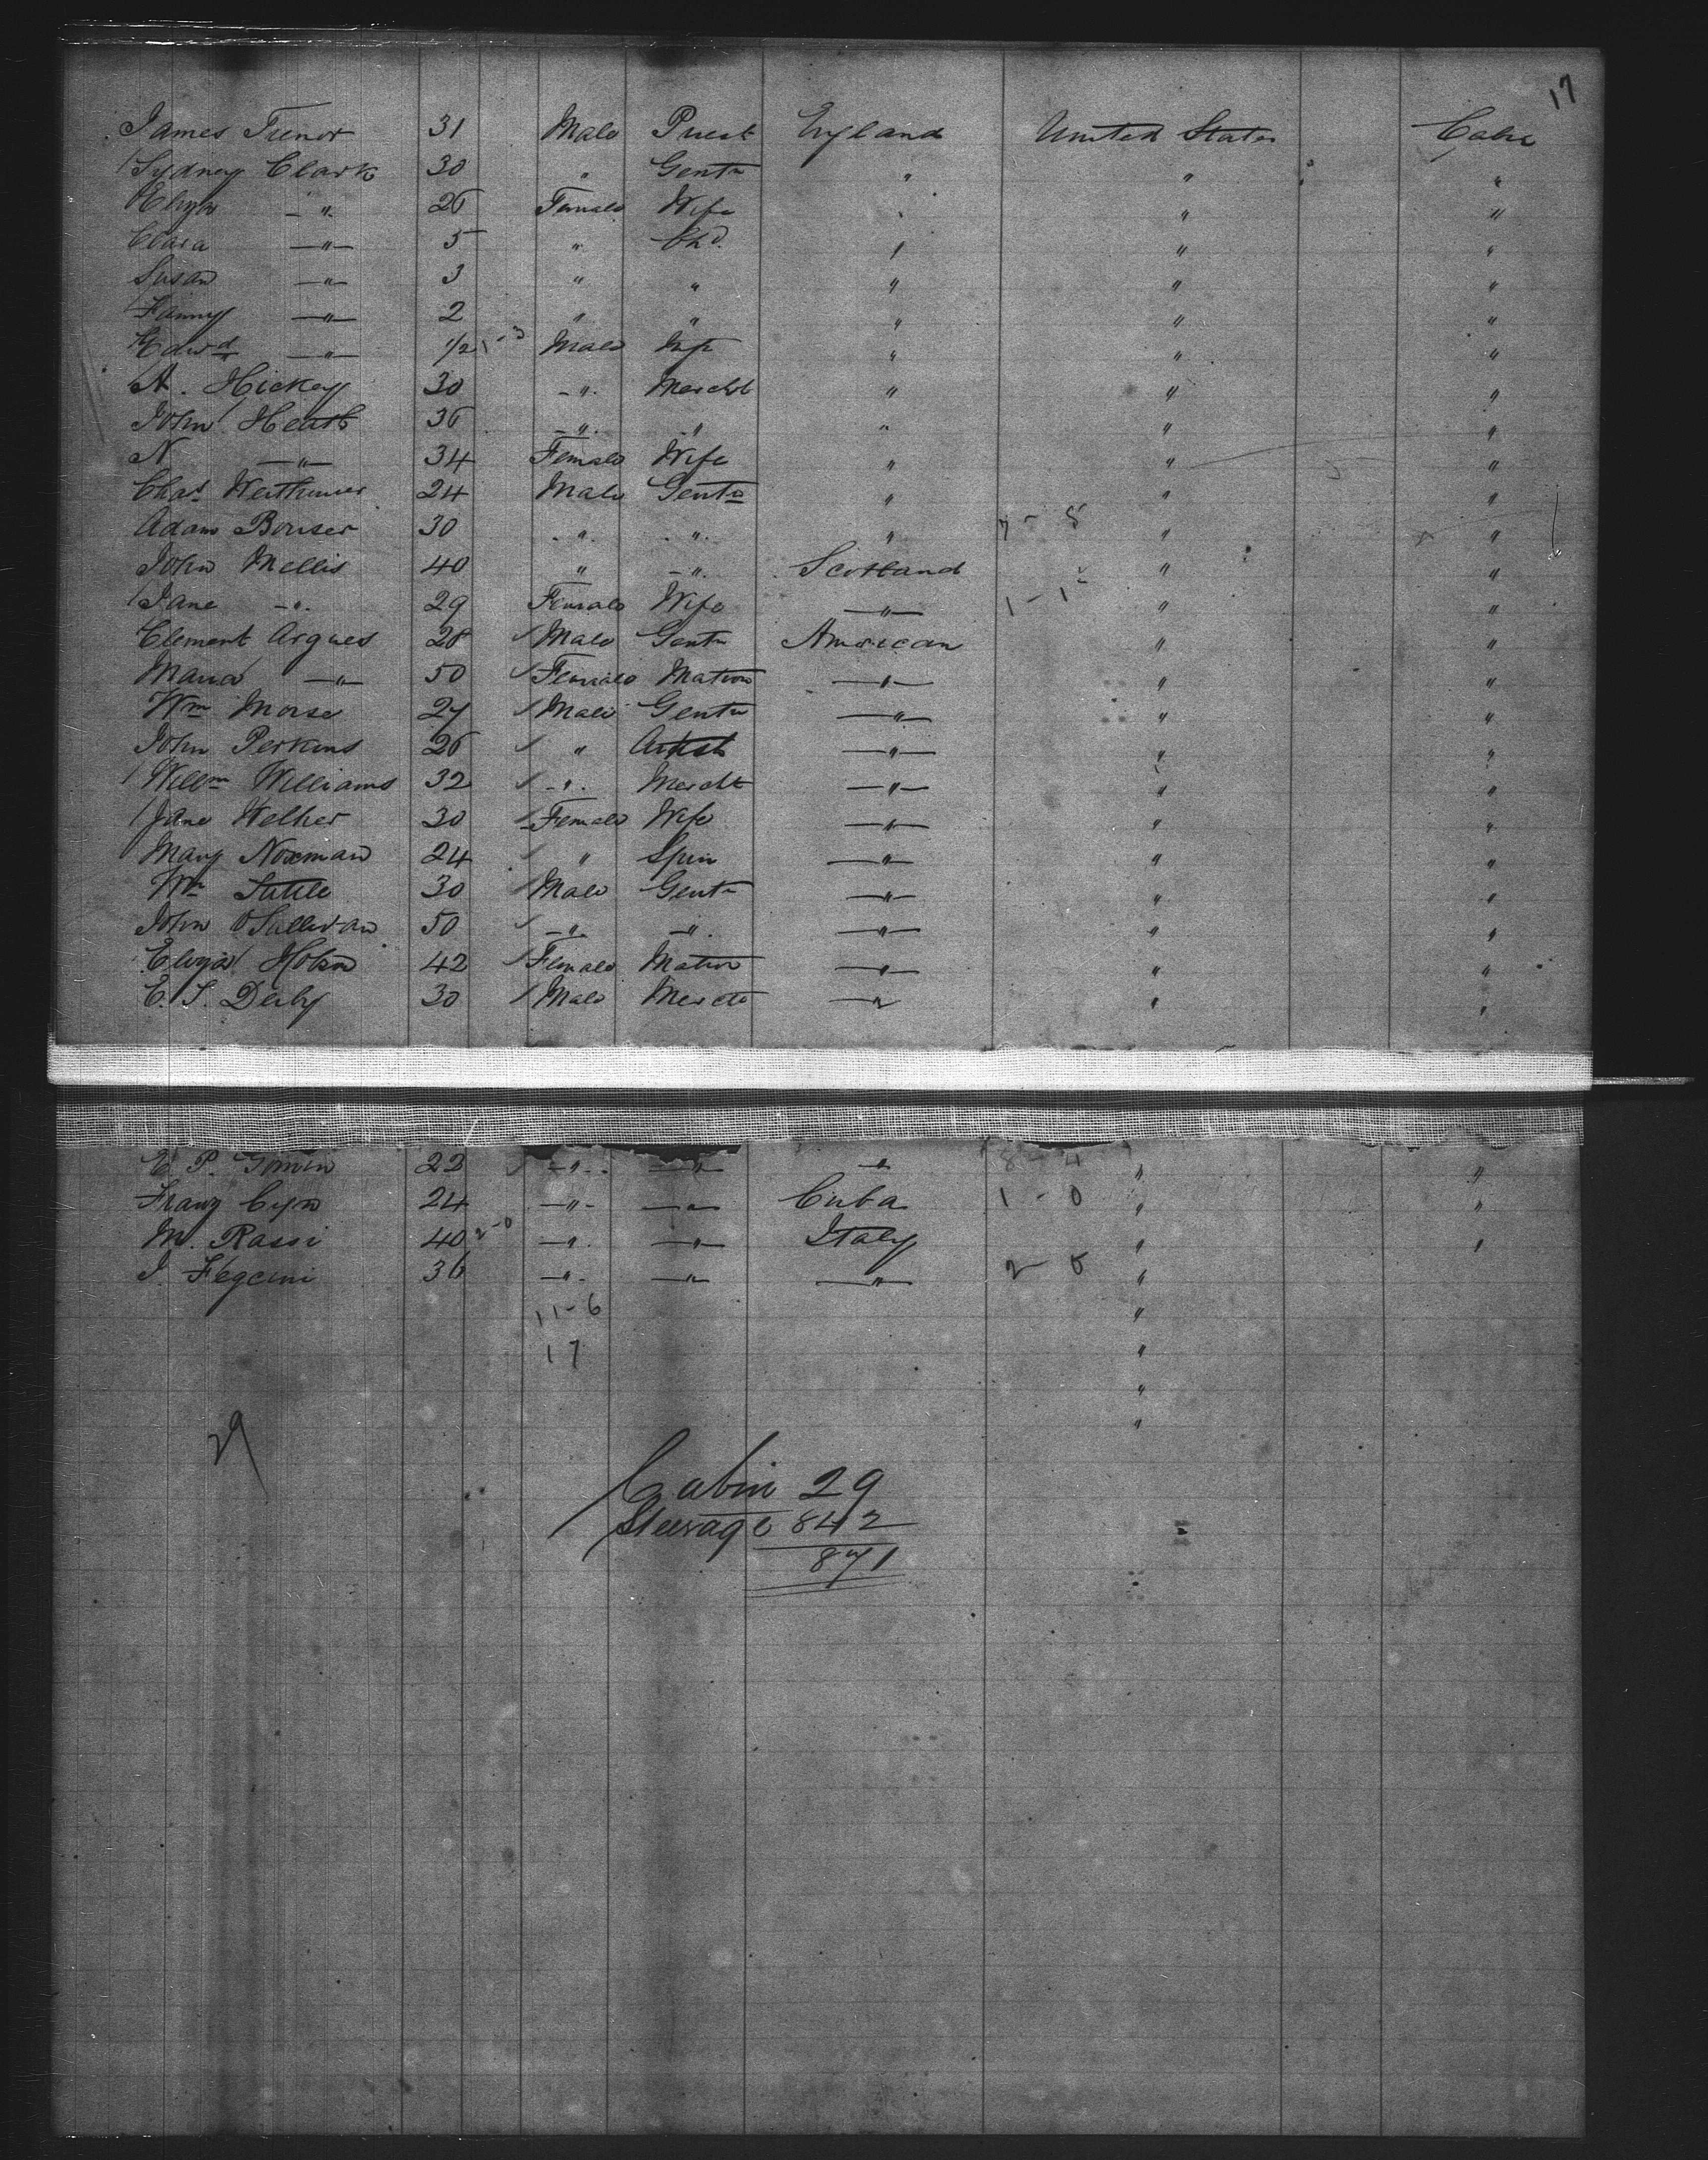 17
James Trenor 31 Male Priest England United States Cabin
Sydney Clark 30 " Gentn " " "
Eliza — " — 26 Female Wife " " "
Clara — " — 5 " Chd. " " "
Susan — " — 3 " " " " "
Fanny — " — 2 " " " " "
Edwd — " — 1/2 1-3 Male Inft " " "
A. Hickey 30 " Mercht " " "
John Heath 36 " " " " "
N — " — 34 Female Wife " " "
Chas Wertheimer 24 Male Gentn " " "
Adam Bouser 30 " " " 7-5 " "
John Mellis 40 " " Scotland " "
Jane " 29 Female Wife — " — 1-1 " "
Clement Argues 28 Male Gentn American " "
Maria — " — 50 Female Matron — " — " "
Wm Morse 27 Male Gentn — " — " "
John Perkins 26 " Artist — " — " "
Willm Williams 32 " Mercht — " — " "
Jane Welher 30 Female Wife — " — " "
Mary Noxman 24 " Spin — " — " "
Wm Suttle 30 Male Gentn — " — " "
John OSullivan 50 " " — " — " "
Eliza Hobn 42 Female Matron — " — " "
E. S. Derby 30 Male Mercht — " — " "
E. P. 22 — " — — " — " 8-4 " "
Franz Cyn 24 — " — — " — Cuba 1-0 " "
M. Rassi 40 2-0 — " — — " — Italy " "
J. Fegemi 36 — " — — " — — " — 2-0 "
11-6 "
17 "
"
"
29
Cabin 29
Steerage 842
871